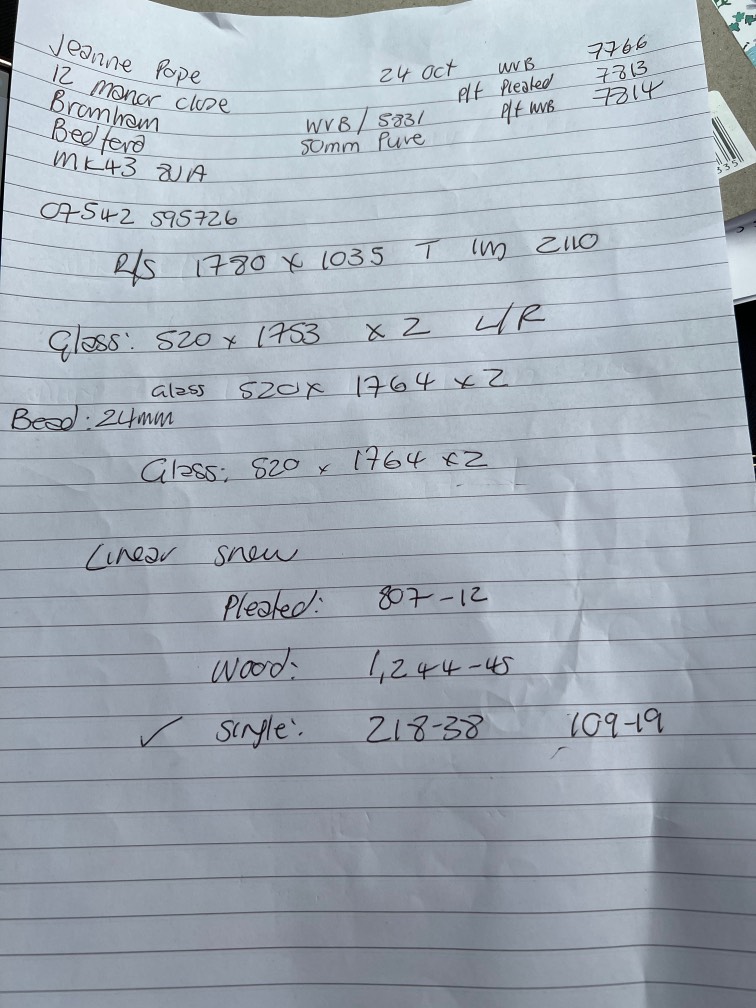 Jeanne Pope
12 Manor Close
Bromham
Bedford
MK43
07542 595726
24 Oct
WVB / 5831
50mm Pure
WVB 7766
P/f Pleated 7813
P/f WVB 7814
R/S 1780 x 1035 T 1m 2110
Glass: 520 x 1753 x 2 L/R
Glass 520 x 1764 x 2
Bead: 24mm
Glass: 520 x 1764 x 2
Linear snow
Pleated: 807-12
Wood: 1,244-45
✓ Single: 218-38 109-19
335